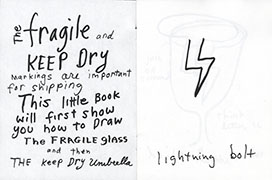 The fragile and
KEEP Dry
markings are important
for shipping
This little Book
will first show
you how to Draw
The FRAGILE glass
and then
THE Keep Dry Umbrella
lightning bolt